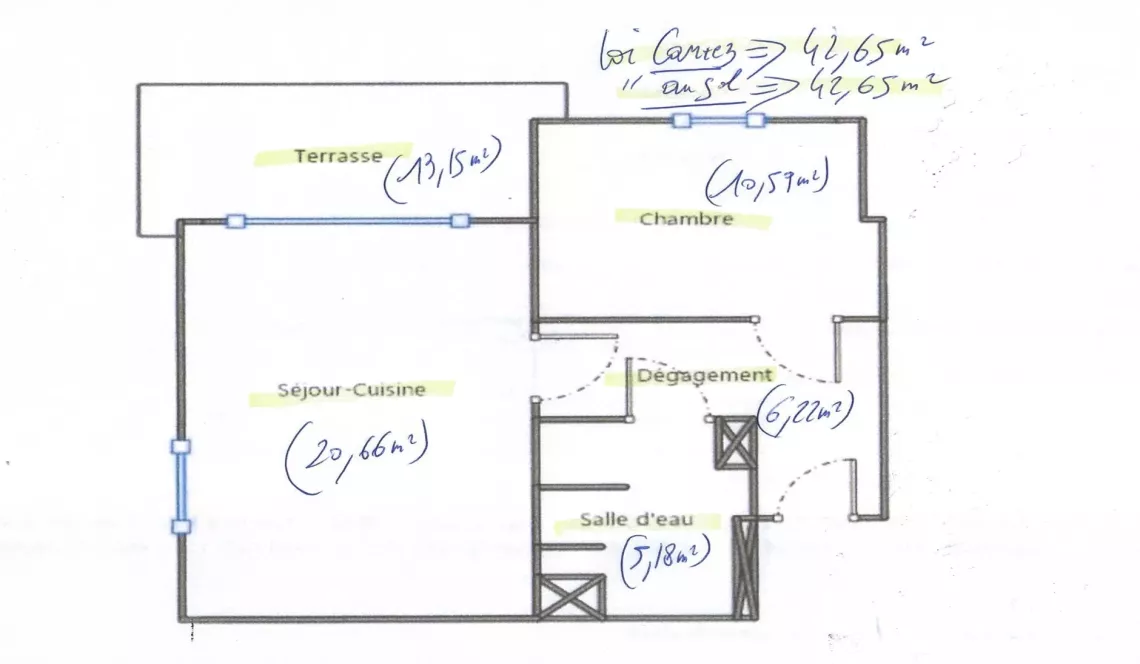 Loi Carrez => 42,65 m²
" au sol => 42,65 m²
Terrasse (13,15 m²)
(10,57 m²)
Chambre
Séjour-Cuisine
(20,66 m²)
Dégagement
(6,22 m²)
Salle d'eau
(5,18 m²)